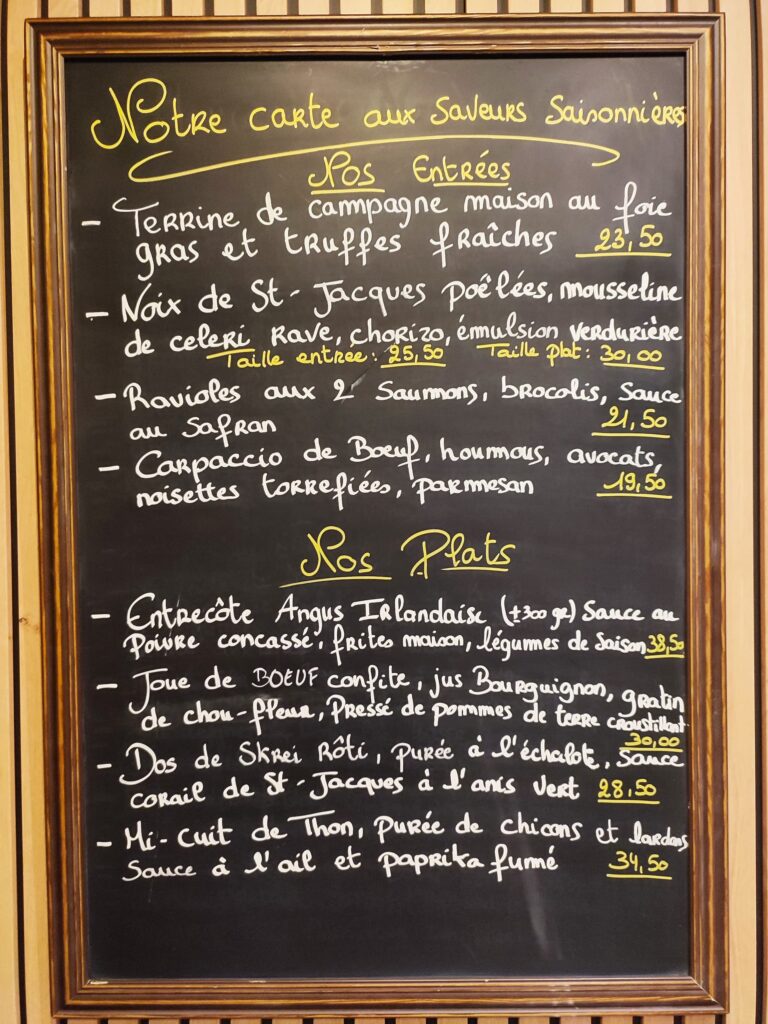 Notre carte aux saveurs saisonnières
Nos Entrées
- Terrine de campagne maison au foie
gras et truffes fraîches 23,50
- Noix de St-Jacques poêlées, mousseline
de celeri rave, chorizo, émulsion verdurière
Taille entrée: 25,50 Taille plat: 30,00
- Ravioles aux 2 saumons, brocolis, sauce
au safran 21,50
- Carpaccio de Boeuf, houmous, avocats,
noisettes torrefiées, parmesan 19,50
Nos Plats
- Entrecôte Angus Irlandaise (±300 gr) Sauce au
Poivre concassé, frites maison, légumes de saison 38,50
- Joue de BOEUF confite, jus Bourguignon, gratin
de chou-fleur, Pressé de pommes de terre croustillant
30,00
- Dos de Skrei Rôti, purée à l'échalote, sauce
corail de St-Jacques à l'anis vert 28,50
- Mi-cuit de Thon, purée de chicons et lardons
Sauce à l'ail et paprika fumé 34,50